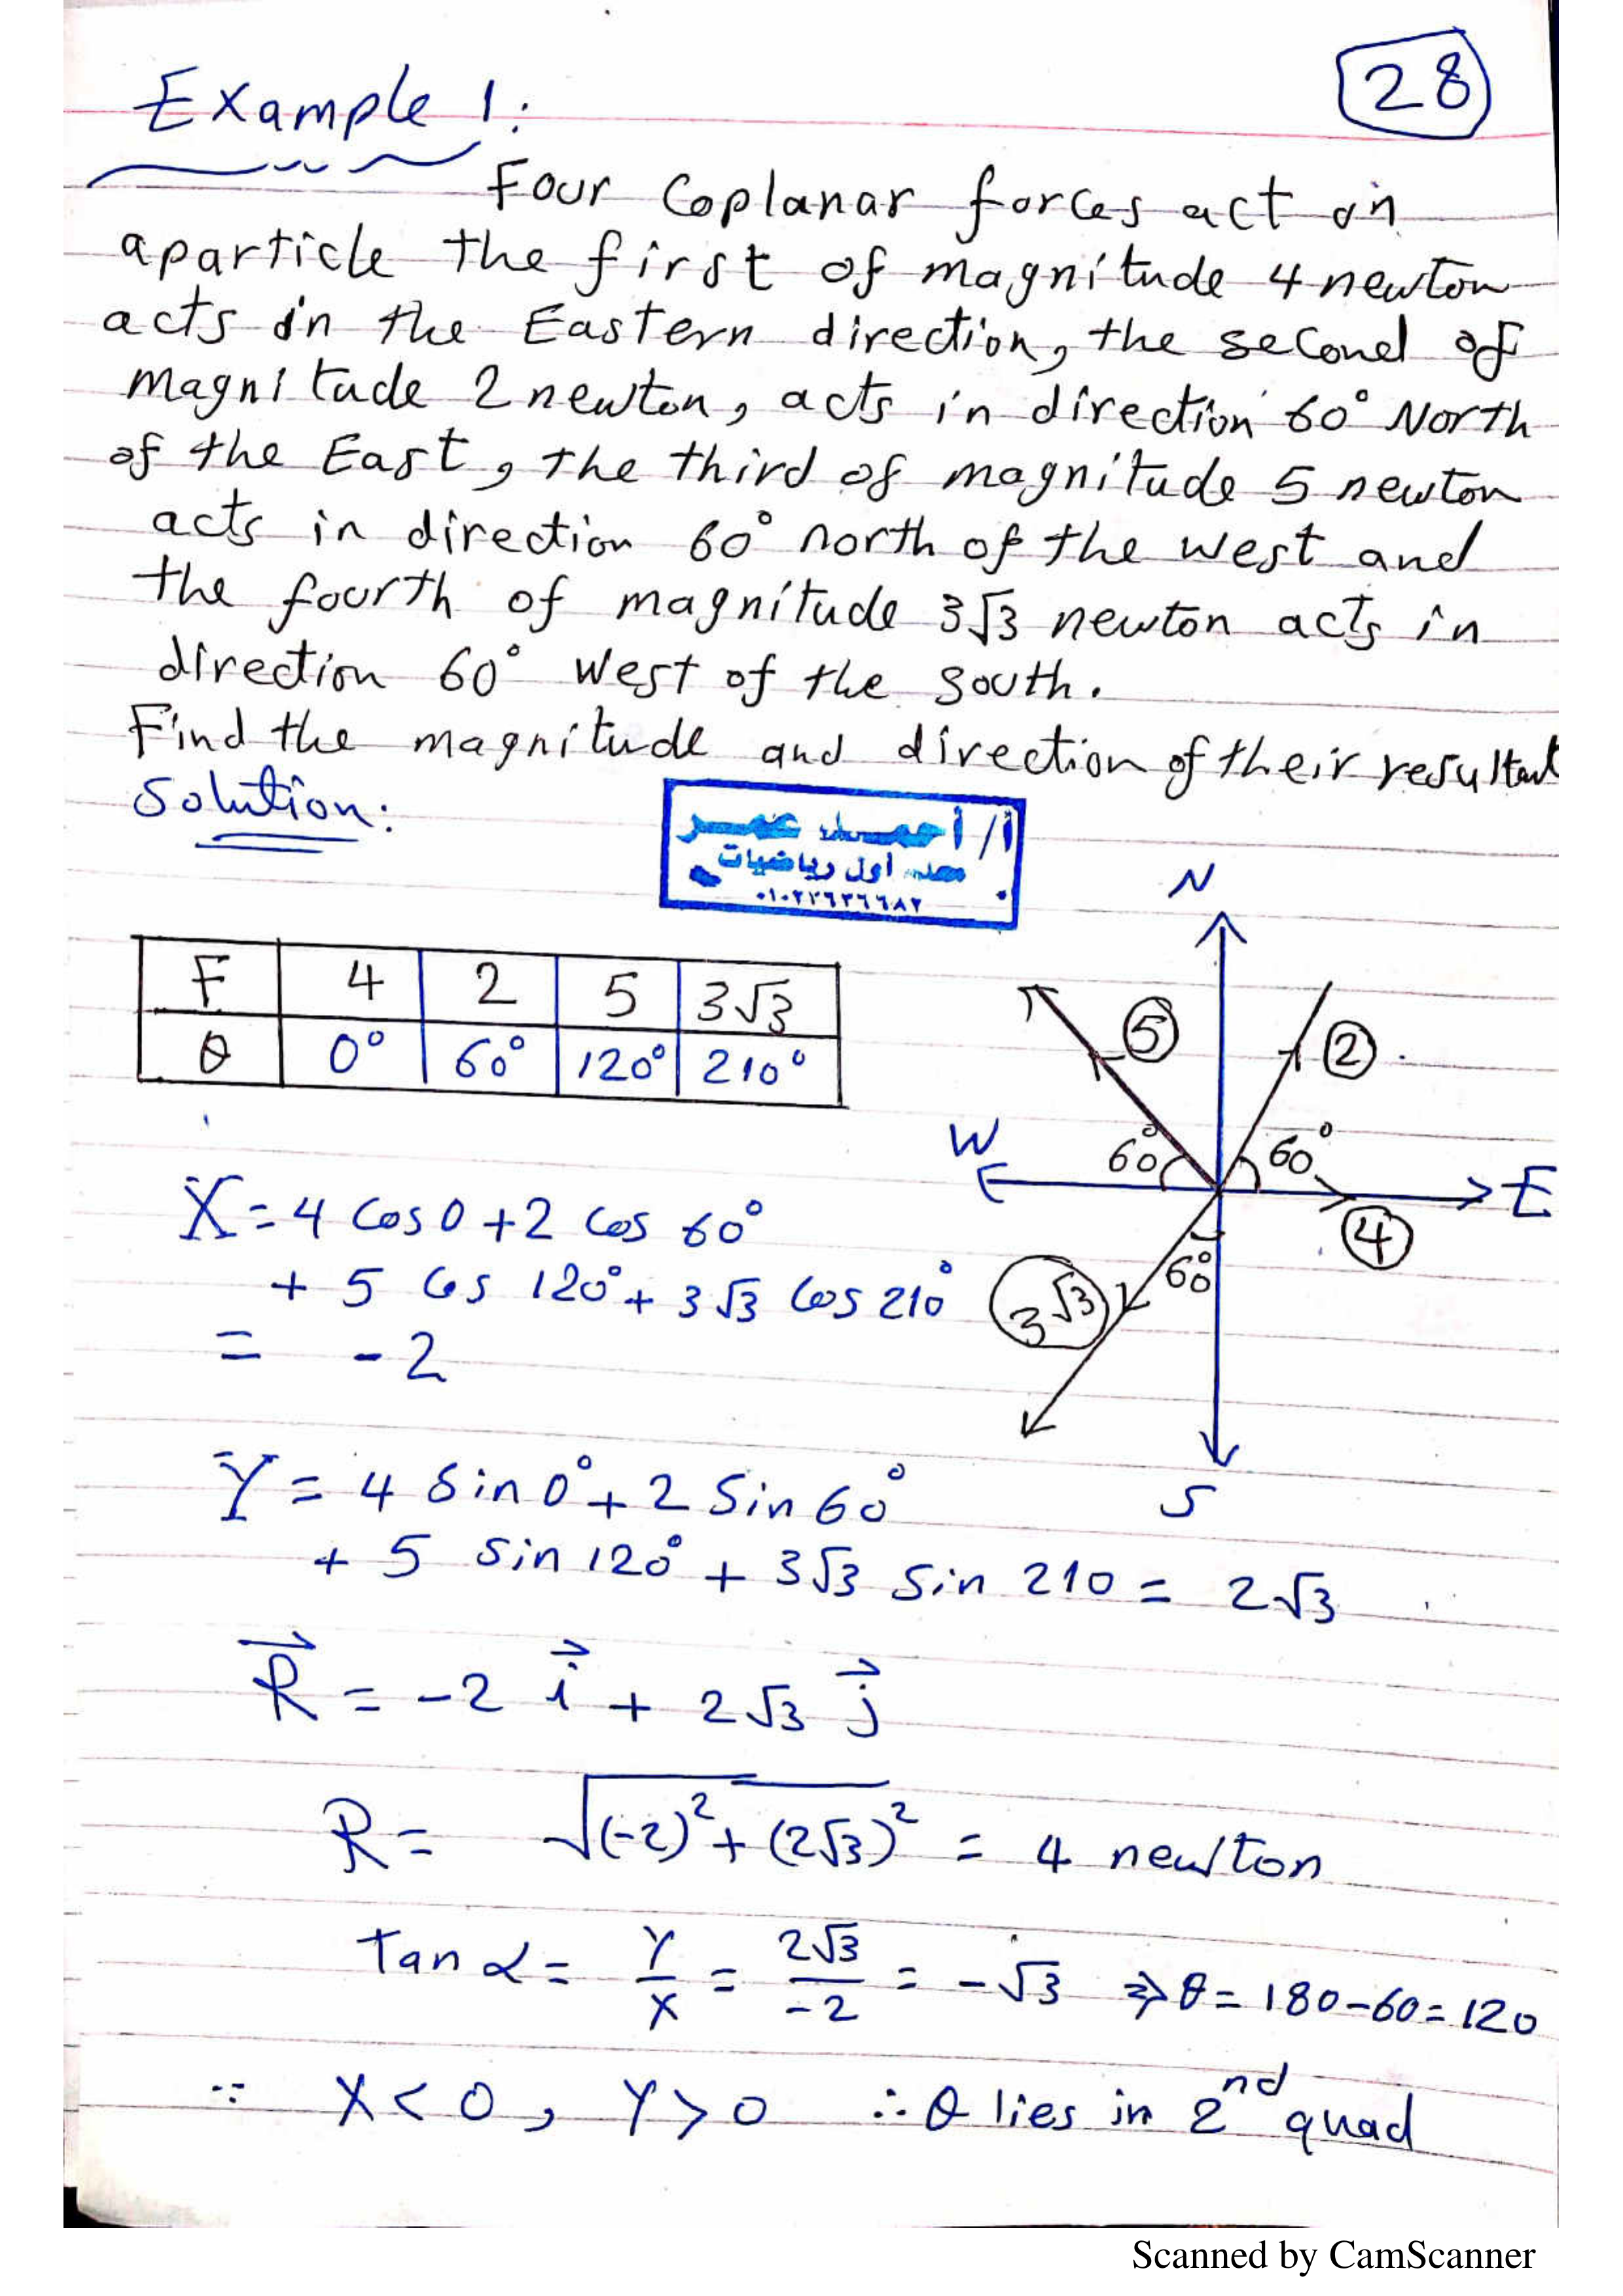 28
Example 1:
Four Coplanar forces act on
a particle the first of magnitude 4 newton
acts in the Eastern direction, the second of
magnitude 2 newton, acts in direction 60° North
of the East, the third of magnitude 5 newton
acts in direction 60° north of the west and
the fourth of magnitude 3√3 newton acts in
direction 60° west of the south.
Find the magnitude and direction of their resultant
Solution:
أ/ أحمد عمر
معلم أول رياضيات
٠١٠٢٢٦٣٦٦٨٢
N
F 4 2 5 3√3
θ 0° 60° 120° 210°
5 2
W 60° 60° E
4
60°
3√3
S
X = 4 cos 0 + 2 cos 60°
+ 5 cos 120° + 3√3 cos 210°
= -2
Y = 4 sin 0° + 2 sin 60°
+ 5 sin 120° + 3√3 sin 210 = 2√3
R⃗ = -2 i⃗ + 2√3 j⃗
R = √((-2)² + (2√3)²) = 4 newton
tan α = Y/X = 2√3/-2 = -√3 ⇒ θ = 180-60 = 120
∵ X < 0, Y > 0 ∴ θ lies in 2nd quad
Scanned by CamScanner